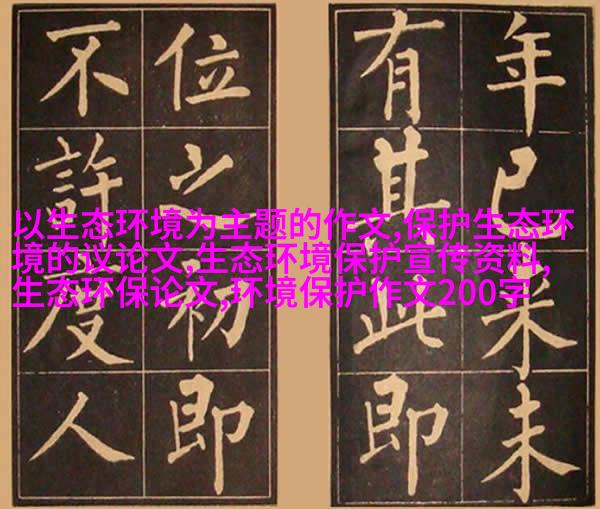 年已来未
有其此即
位之初即
不許度人
以生态环境为主题的作文,保护生态环
境的议论文,生态环境保护宣传资料,
生态环保论文,环境保护作文200字